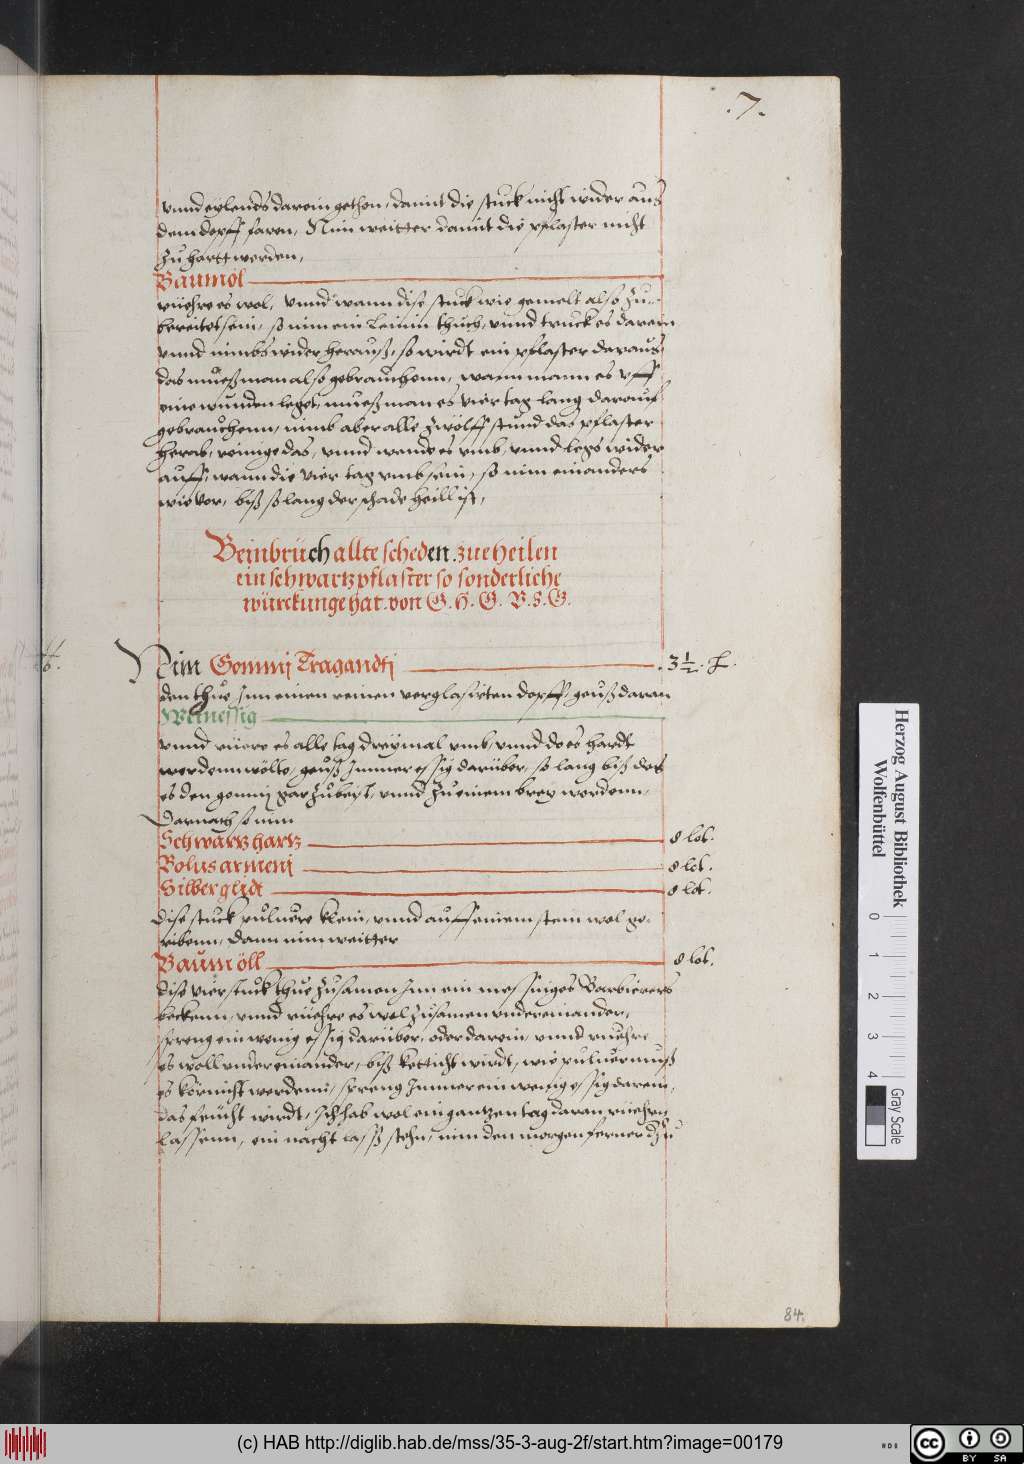 .7.
vnnd eylends darein gethon, damit die stuck nicht wider aus
dem dopff faren, Nim weitter damit die pflaster nicht
zu hartt werden,
Baumöl
rüehre es wol, vnnd wann dise stuck wie gemelt also zu-
bereitet sein, so nim ein leinin thuch, vnnd truck es darein
vnnd nimbs wider herauß, so wirdt ein pflaster daraus,
das mueß man also gebrauchenn, wann mann es vff
eine wunden leget, mueß man es vier tag lang darauf
gebrauchenn, nimb aber alle zwölff stund das pflaster
herab, reinige das, vnnd wende es vmb, vnnd legs wider
auff, wann die vier tag vmb sein, so nim ein anders
wie vor, biß so lang der schade heill ist,
Beinbrüch allte scheden .zue heilen
ein schwartz pflaster so sonderliche
würckunge hat. von G. H. G. V. S. G.
Nim Gommj Tragandtj 3½
den thue Inn einen reinen verglasirten dopff, geuß daran
Weinessig
vnnd rüere es alle tag dreymal vmb, vnnd do es hardt
werdenn wölte, geuß Immer essig darüber, so lang biß das
es den gommj gar zubeist, vnnd zu einem brey werdenn,
Darnach so nim
Schwartz hartz 8 lot.
Bolus armenj 8 lot.
Silber glidt 8 lot.
Dise stuck puluere klein, vnnd auff einem stein wol ge-
ribenn, dann nim weitter
Baumöll 8 lot.
Dise vier stuck thue zusamen Inn ein messinges Barbierers
beckenn, vnnd rüehre es wol zusamen vndereinander,
spreng ein wenig essig darüber, oder darein, vnnd ruehre
es woll vndereinander, biß kotticht wirdt, wie puluer muß
es körnicht werdenn, spreng Immer ein wenig essig darein,
das feucht wirdt, Ich hab wol ein gantzen tag daran rüehren
lassenn, ein nacht lassß stehn, nim den morgen ferner dzu
84.
Herzog August Bibliothek
Wolfenbüttel
0 1 2 3 4
Gray Scale
(c) HAB http://diglib.hab.de/mss/35-3-aug-2f/start.htm?image=00179
cc BY SA